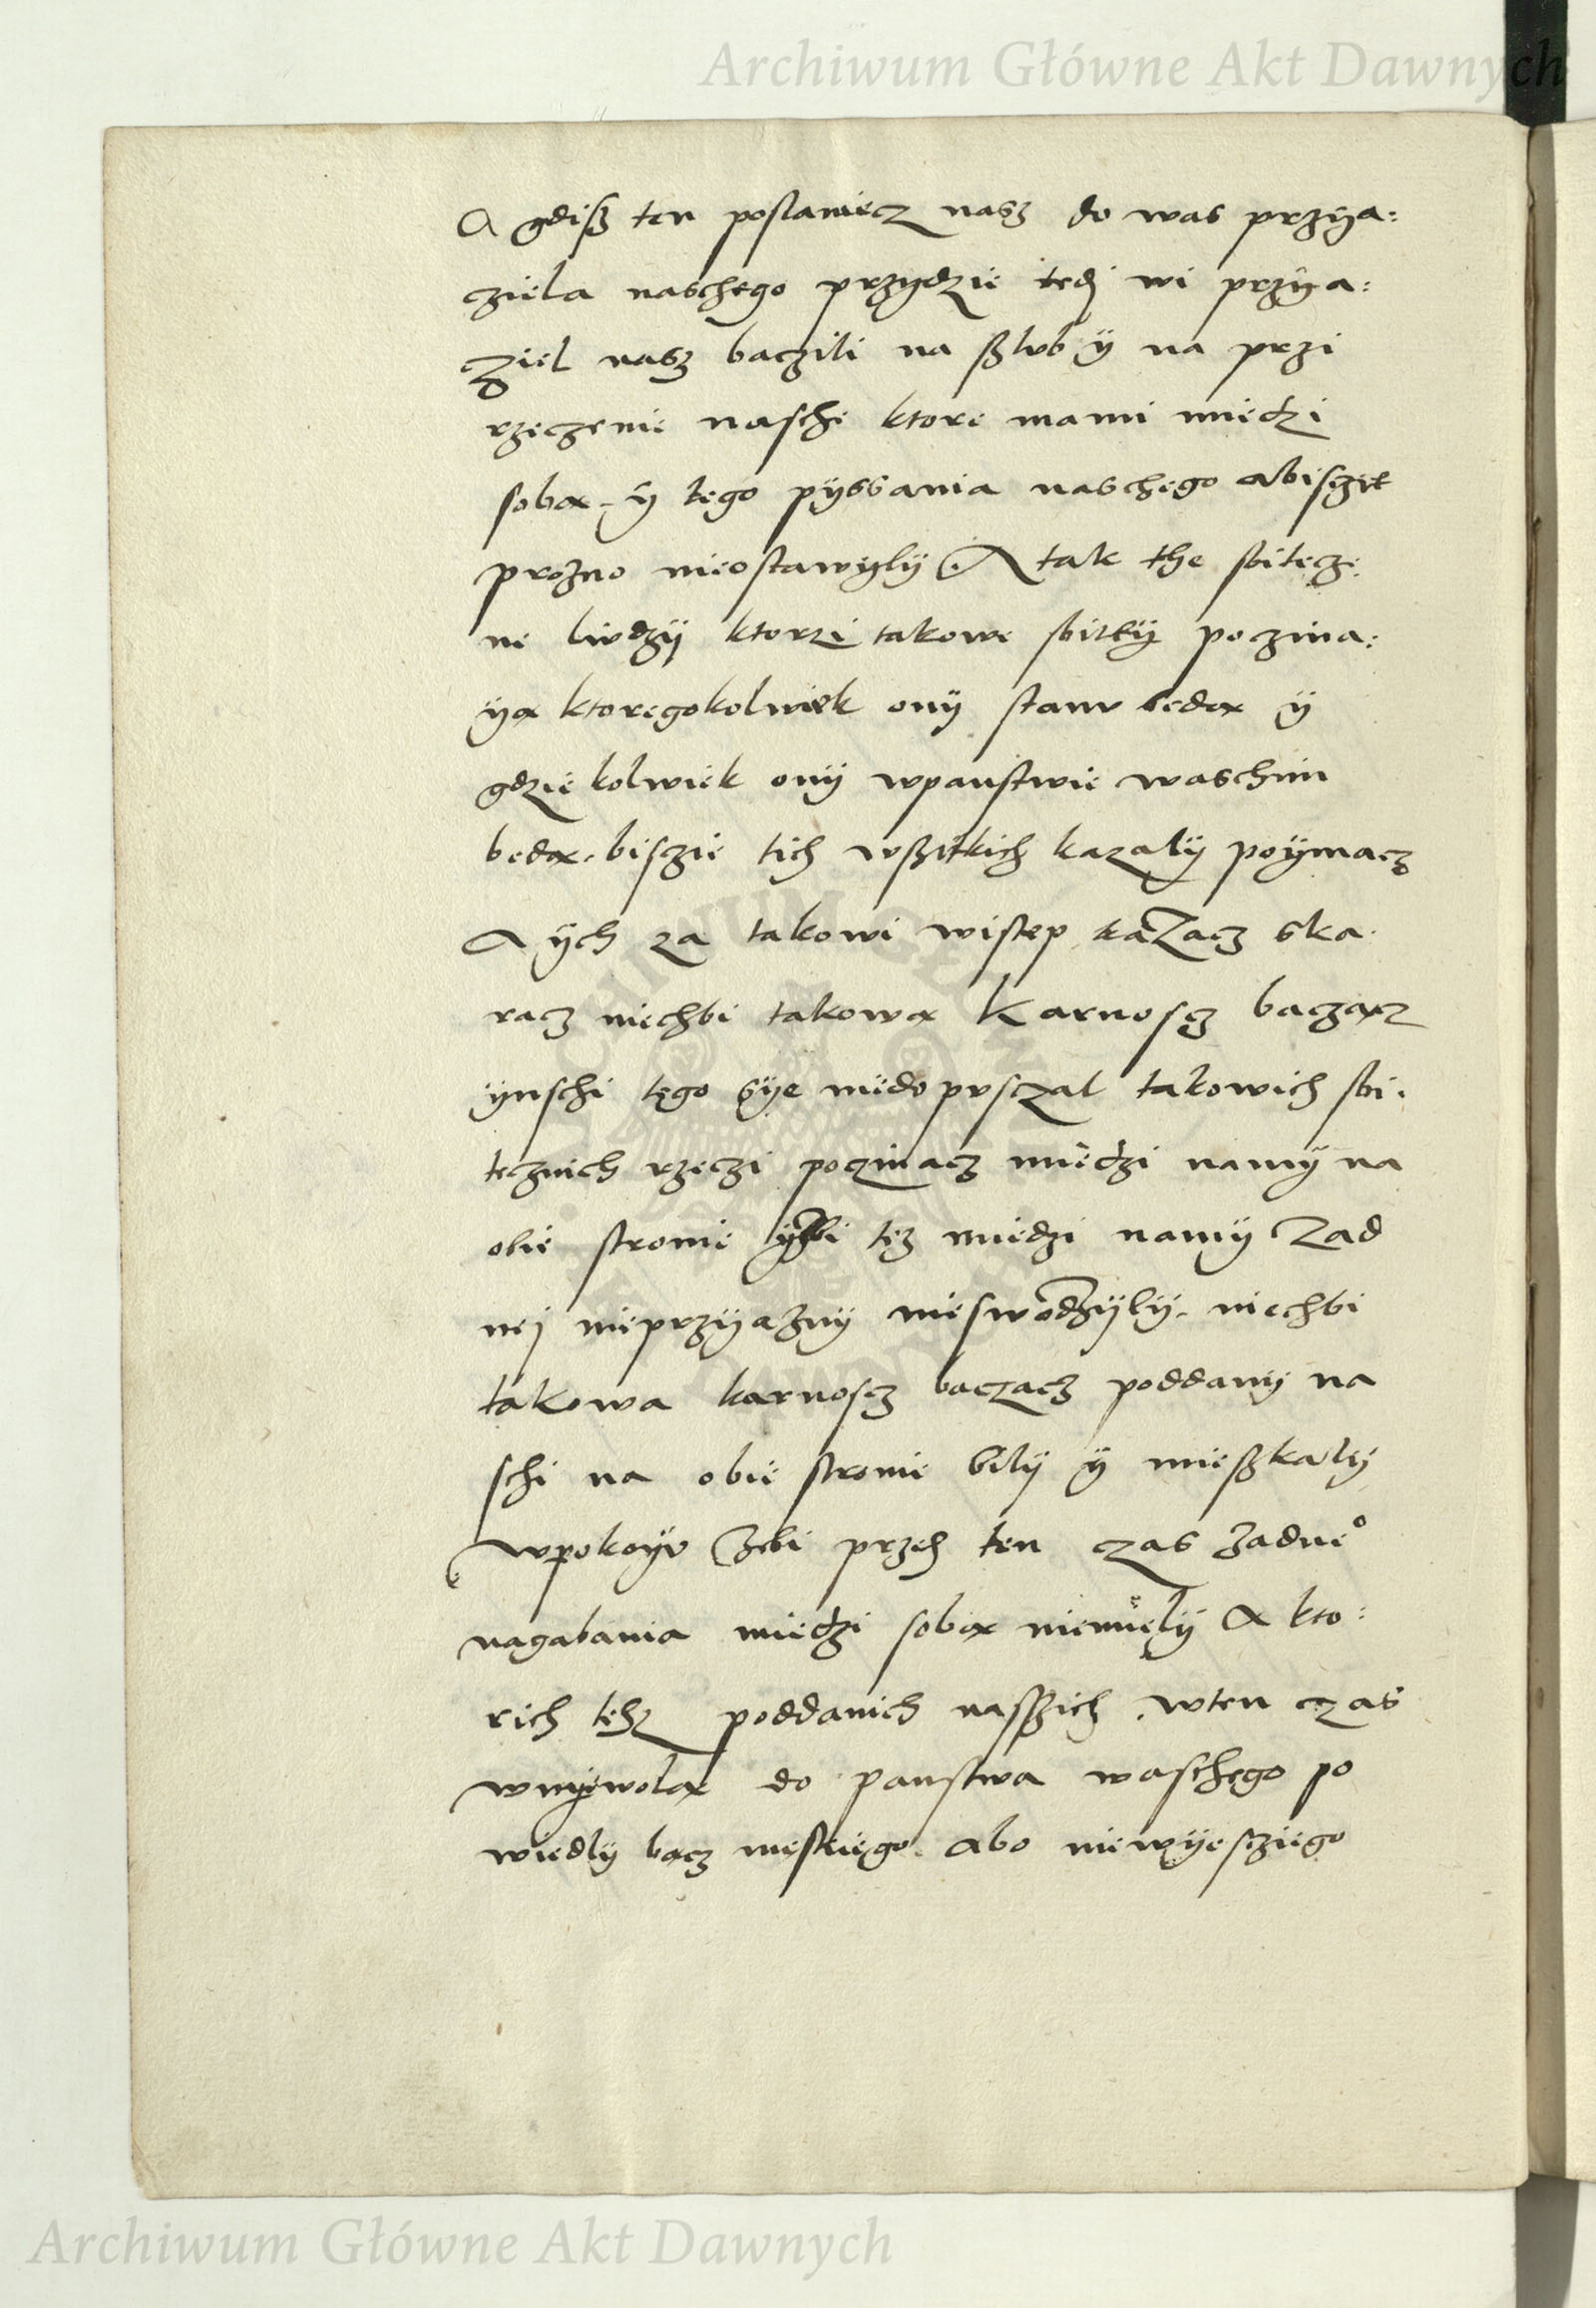 Archiwum Główne Akt Dawnych
A gdisz ten poslaniecz nasz do was przÿa:
cziela naschego przÿdzie tedj wi przÿa:
cziel nasz baczili na szlub ÿ na przi
rzeczenie nasche ktore mami miedzi
soba. ÿ tego pÿssania naschego abisczie
prozno nieostawÿlÿ. A tak the sbitecz:
ne liudzÿ ktorzi takowe sbitkÿ poczina:
ÿa ktoregokolwiek onÿ stanu beda ÿ
gdziekolwiek onÿ wpanstwie waschim
beda. bisczie tich wszitkich kazalÿ poÿmacz
A ÿch za takowi wistep kazacz ska.
racz niechbi takowa karnoscz baczacz
ÿnschi tego sÿe niedopusczal takowich sbi.
tecznich rzeczi poczinacz miedzi namÿ na
obie stronie ÿzbi tez miedzi namÿ zad
nej nieprzÿaznÿ nieswodzÿlÿ. niechbi
takowa karnoscz baczacz poddanÿ na
schi na obie stronie bilÿ ÿ mieszkalÿ
wpokoÿu zebi przes ten czas zadne°
nagabania miedzi soba niemielÿ A kto:
rich tesz poddanich naszich. wten czas
wnÿewola do panstwa waschego po
wiedlÿ bacz meskiego. abo niewÿesciego
Archiwum Główne Akt Dawnych